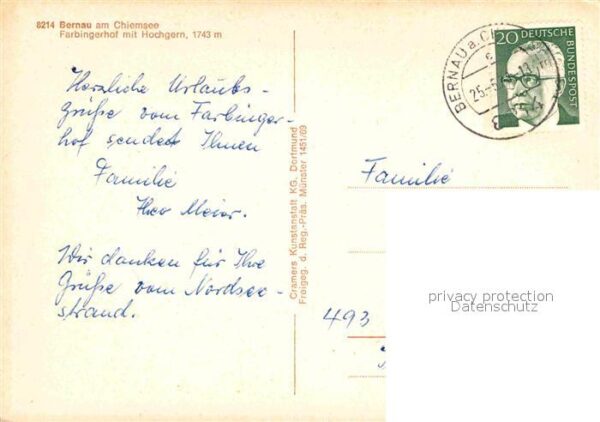 8214 Bernau am Chiemsee
Farbingerhof mit Hochgern, 1743 m
Herzliche Urlaubs-
grüße vom Farbinger-
hof sendet Ihnen
Familie
Theo Meier.
Wir danken für Ihre
Grüße vom Nordsee-
strand.
Cramers Kunstanstalt KG. Dortmund
Freigeg. d. Reg.-Präs. Münster 1451/69
BERNAU a. C
25.-5
20 DEUTSCHE
BUNDESPOST
Familie
493
privacy protection
Datenschutz